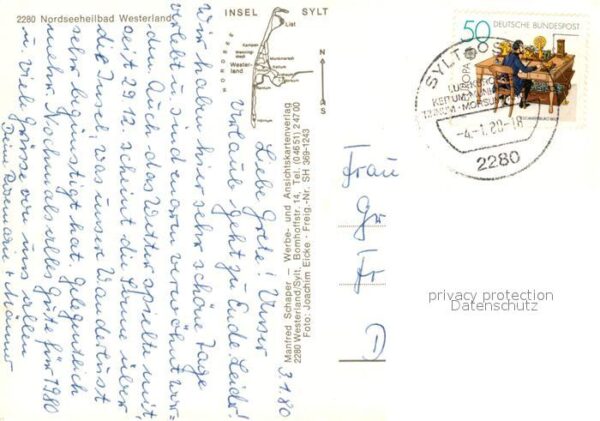 2280 Nordseeheilbad Westerland
INSEL SYLT
List
Kampen
Wester-
land
Munkmarsch
Keitum
NORDSEE
N
3.1.80
Liebe Grete! Unser
Urlaub geht zu Ende leider!
Wir haben hier sehr schöne Tage
verlebt u. sind enorm verwöhnt wor-
den. Auch das Wetter spielte mit,
seit 29.12. scheint die Sonne über
die Insel, was unsere Wanderlust
sehr begünstigt hat. Gelegentlich
mehr. Nochmals alles Gute für 1980
u. viele Grüsse von uns allen
Deine Rosemarie +
Manfred Schaper — Werbe- und Ansichtskartenverlag
2280 Westerland/Sylt, Bomhoffstr. 14, Tel. (04651) 24700
Foto: Joachim Eicke - Freig.-Nr. SH 369-1243
50 DEUTSCHE BUNDESPOST
EUROPA
SYLT-OST
KEITUM
TINNUM - MORSUM
-4.-1.80-18
2280
Frau
Gr
Fr
D
privacy protection
Datenschutz